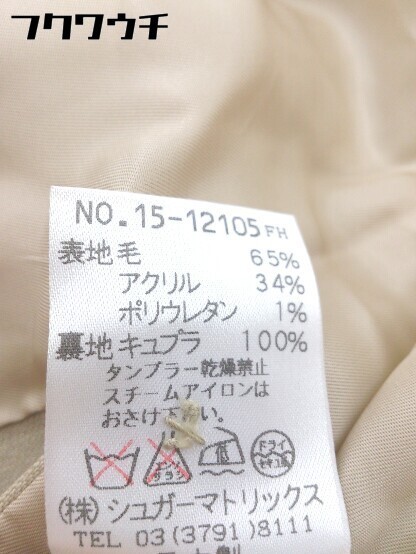 フクワウチ
NO.15-12105FH
表地 毛 65%
アクリル 34%
ポリウレタン 1%
裏地 キュプラ 100%
タンブラー乾燥禁止
スチームアイロンは
おさけ下さい。
エンソ
サラシ
ドライ
セキユ系
(株) シュガーマトリックス
TEL 03(3791)8111